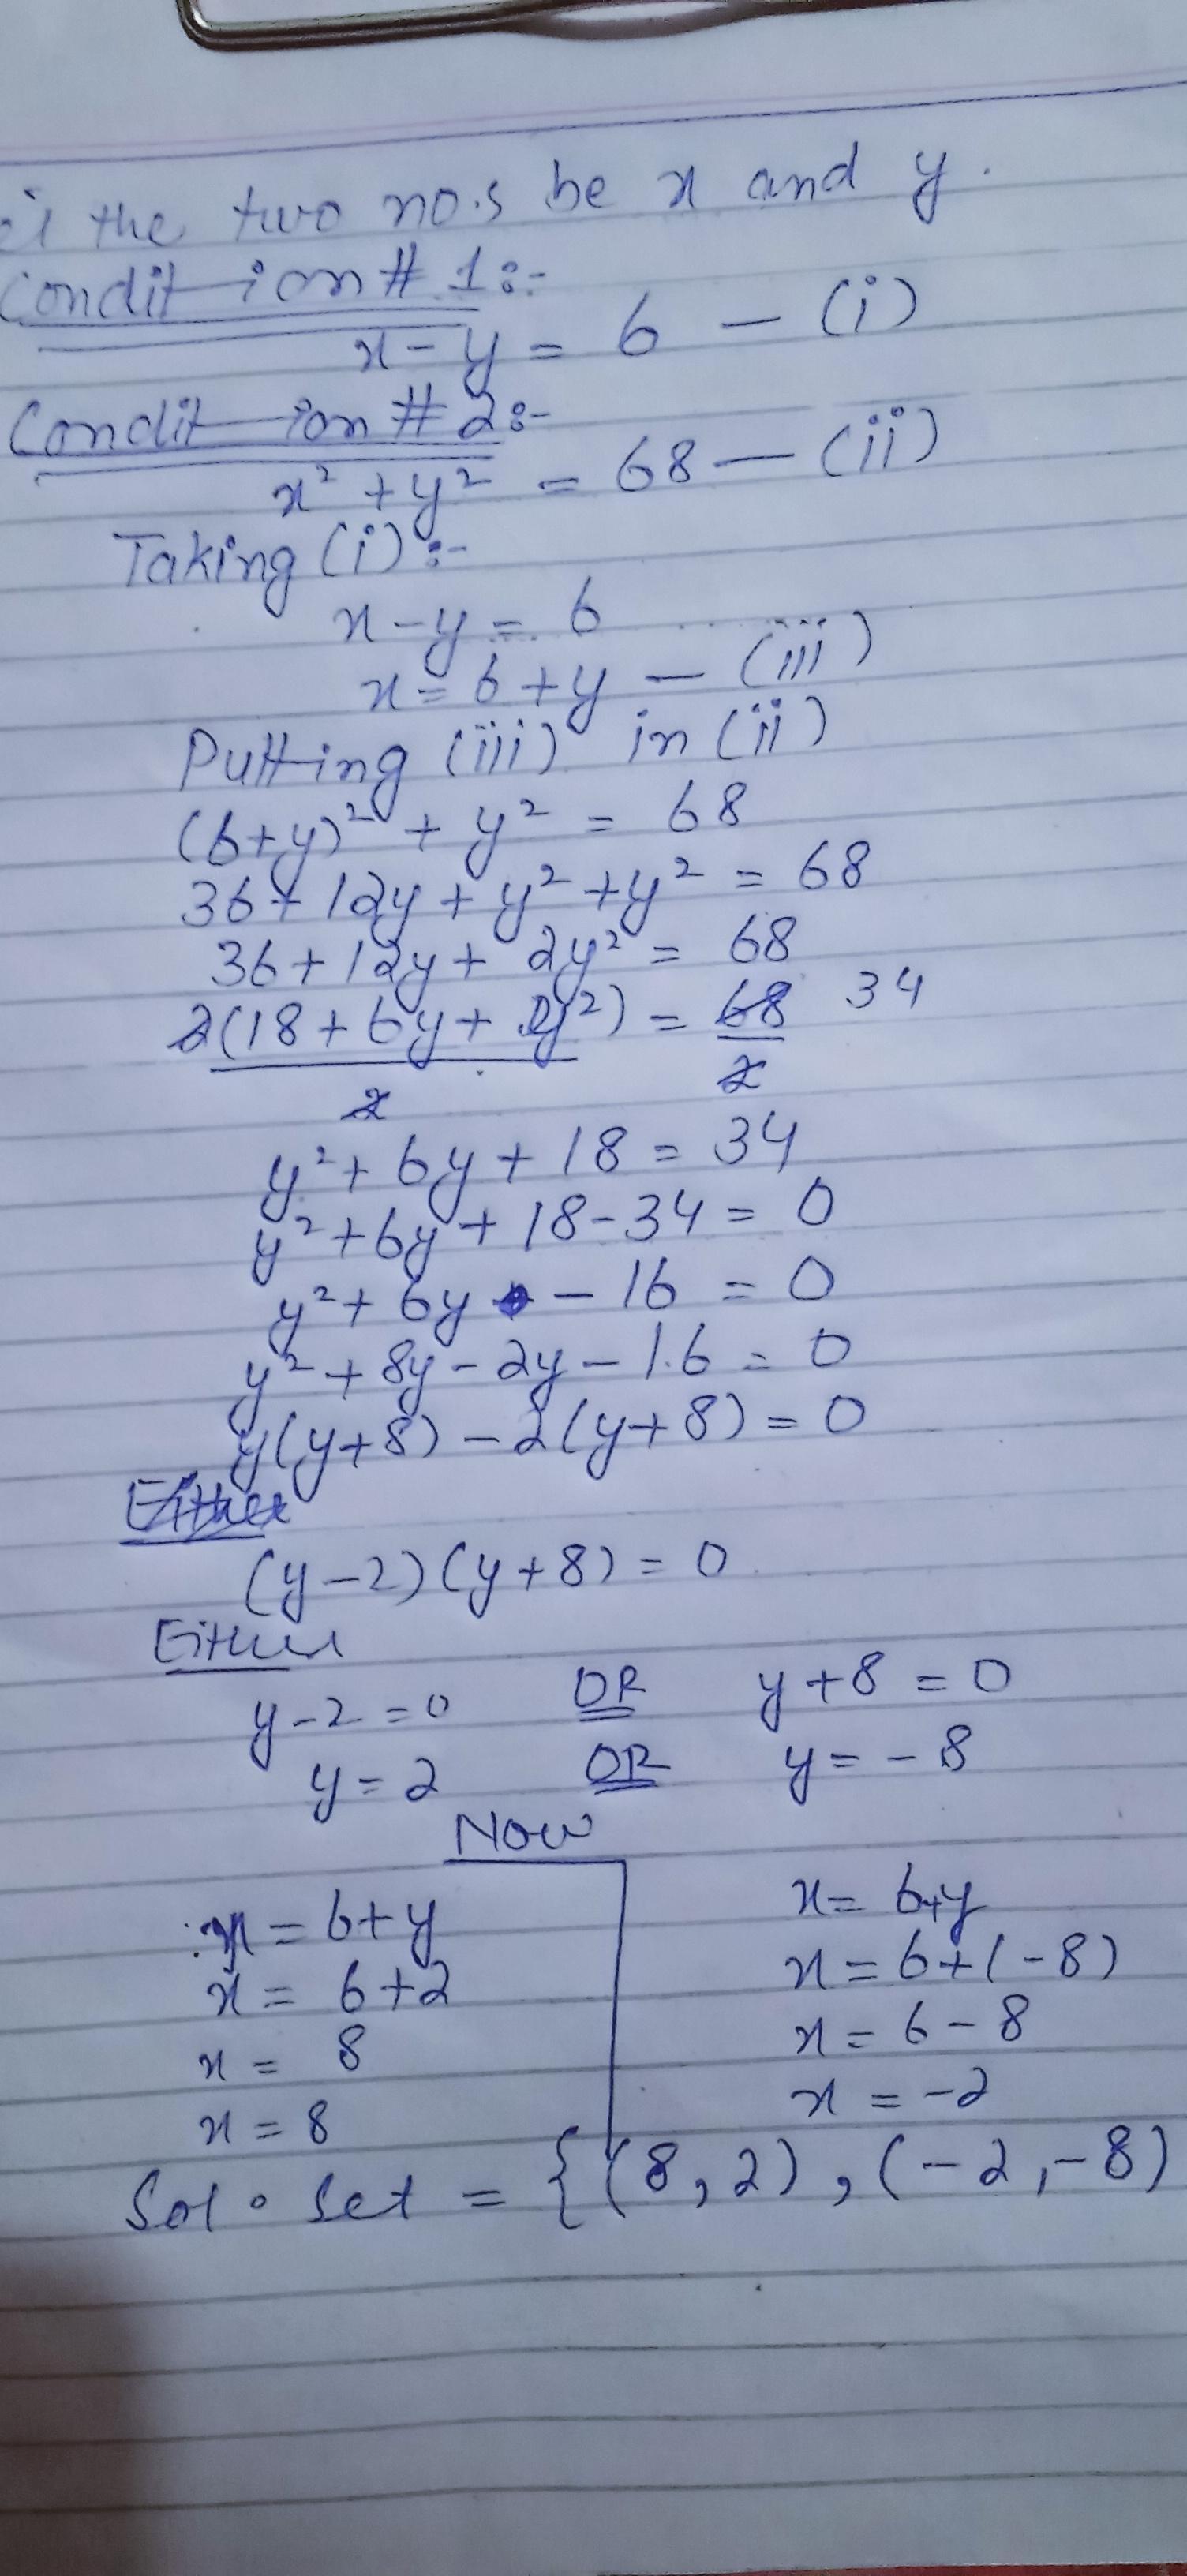 the two no.s be x and y.
Condition # 1:-
x - y = 6 - (i)
Condition # 2:-
x² + y² = 68 - (ii)
Taking (i):-
x - y = 6
x = 6 + y - (iii)
Putting (iii) in (ii)
(6+y)² + y² = 68
36 + 12y + y² + y² = 68
36 + 12y + 2y² = 68
2(18 + 6y + y²) = 68 34
2 2
y² + 6y + 18 = 34
y² + 6y + 18 - 34 = 0
y² + 6y - 16 = 0
y² + 8y - 2y - 16 = 0
y(y+8) - 2(y+8) = 0
Either
(y-2)(y+8) = 0
Either
y - 2 = 0 OR y + 8 = 0
y = 2 OR y = -8
Now
x = 6+y x = 6+y
x = 6+2 x = 6+(-8)
x = 8 x = 6 - 8
x = 8 x = -2
Sol. Set = {(8,2), (-2,-8)